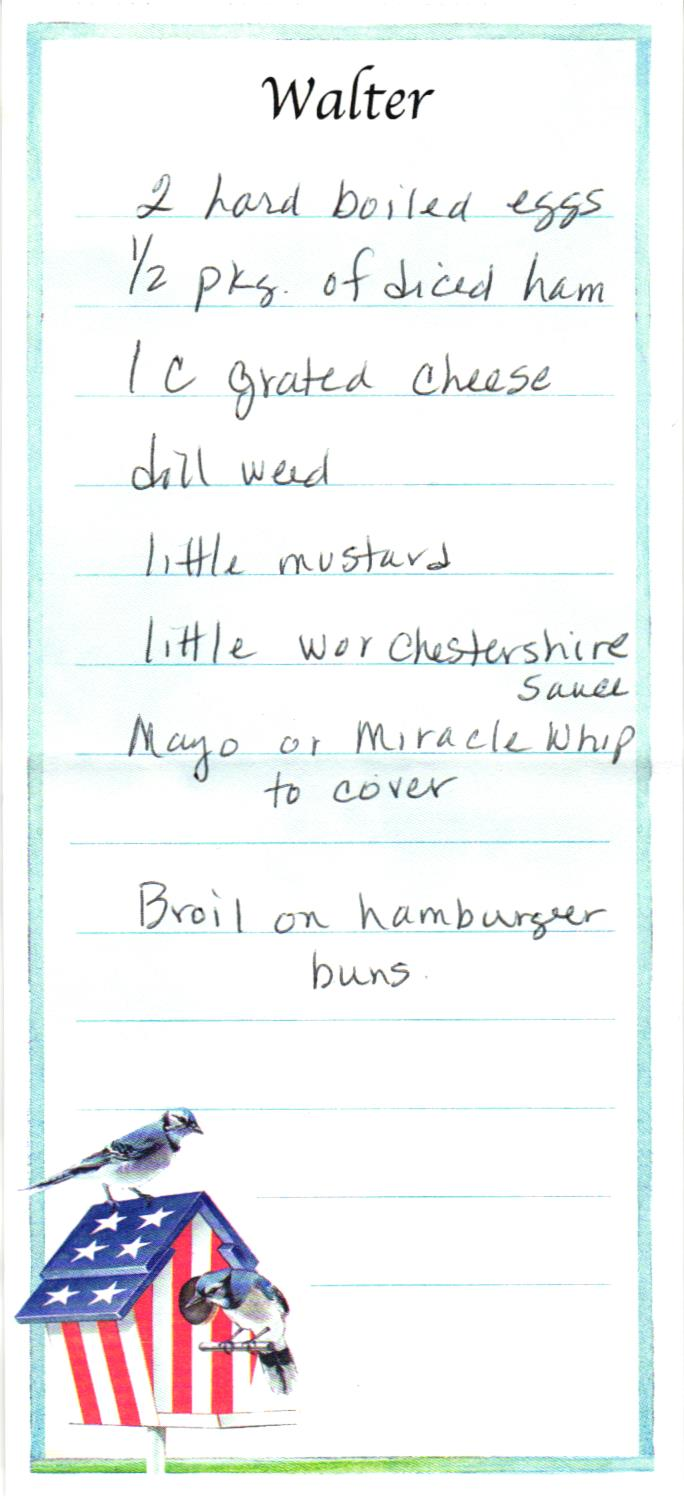 Walter
2 hard boiled eggs
1/2 pkg. of diced ham
1 C grated cheese
dill weed
little mustard
little worchestershire
sauce
Mayo or Miracle Whip
to cover
Broil on hamburger
buns.